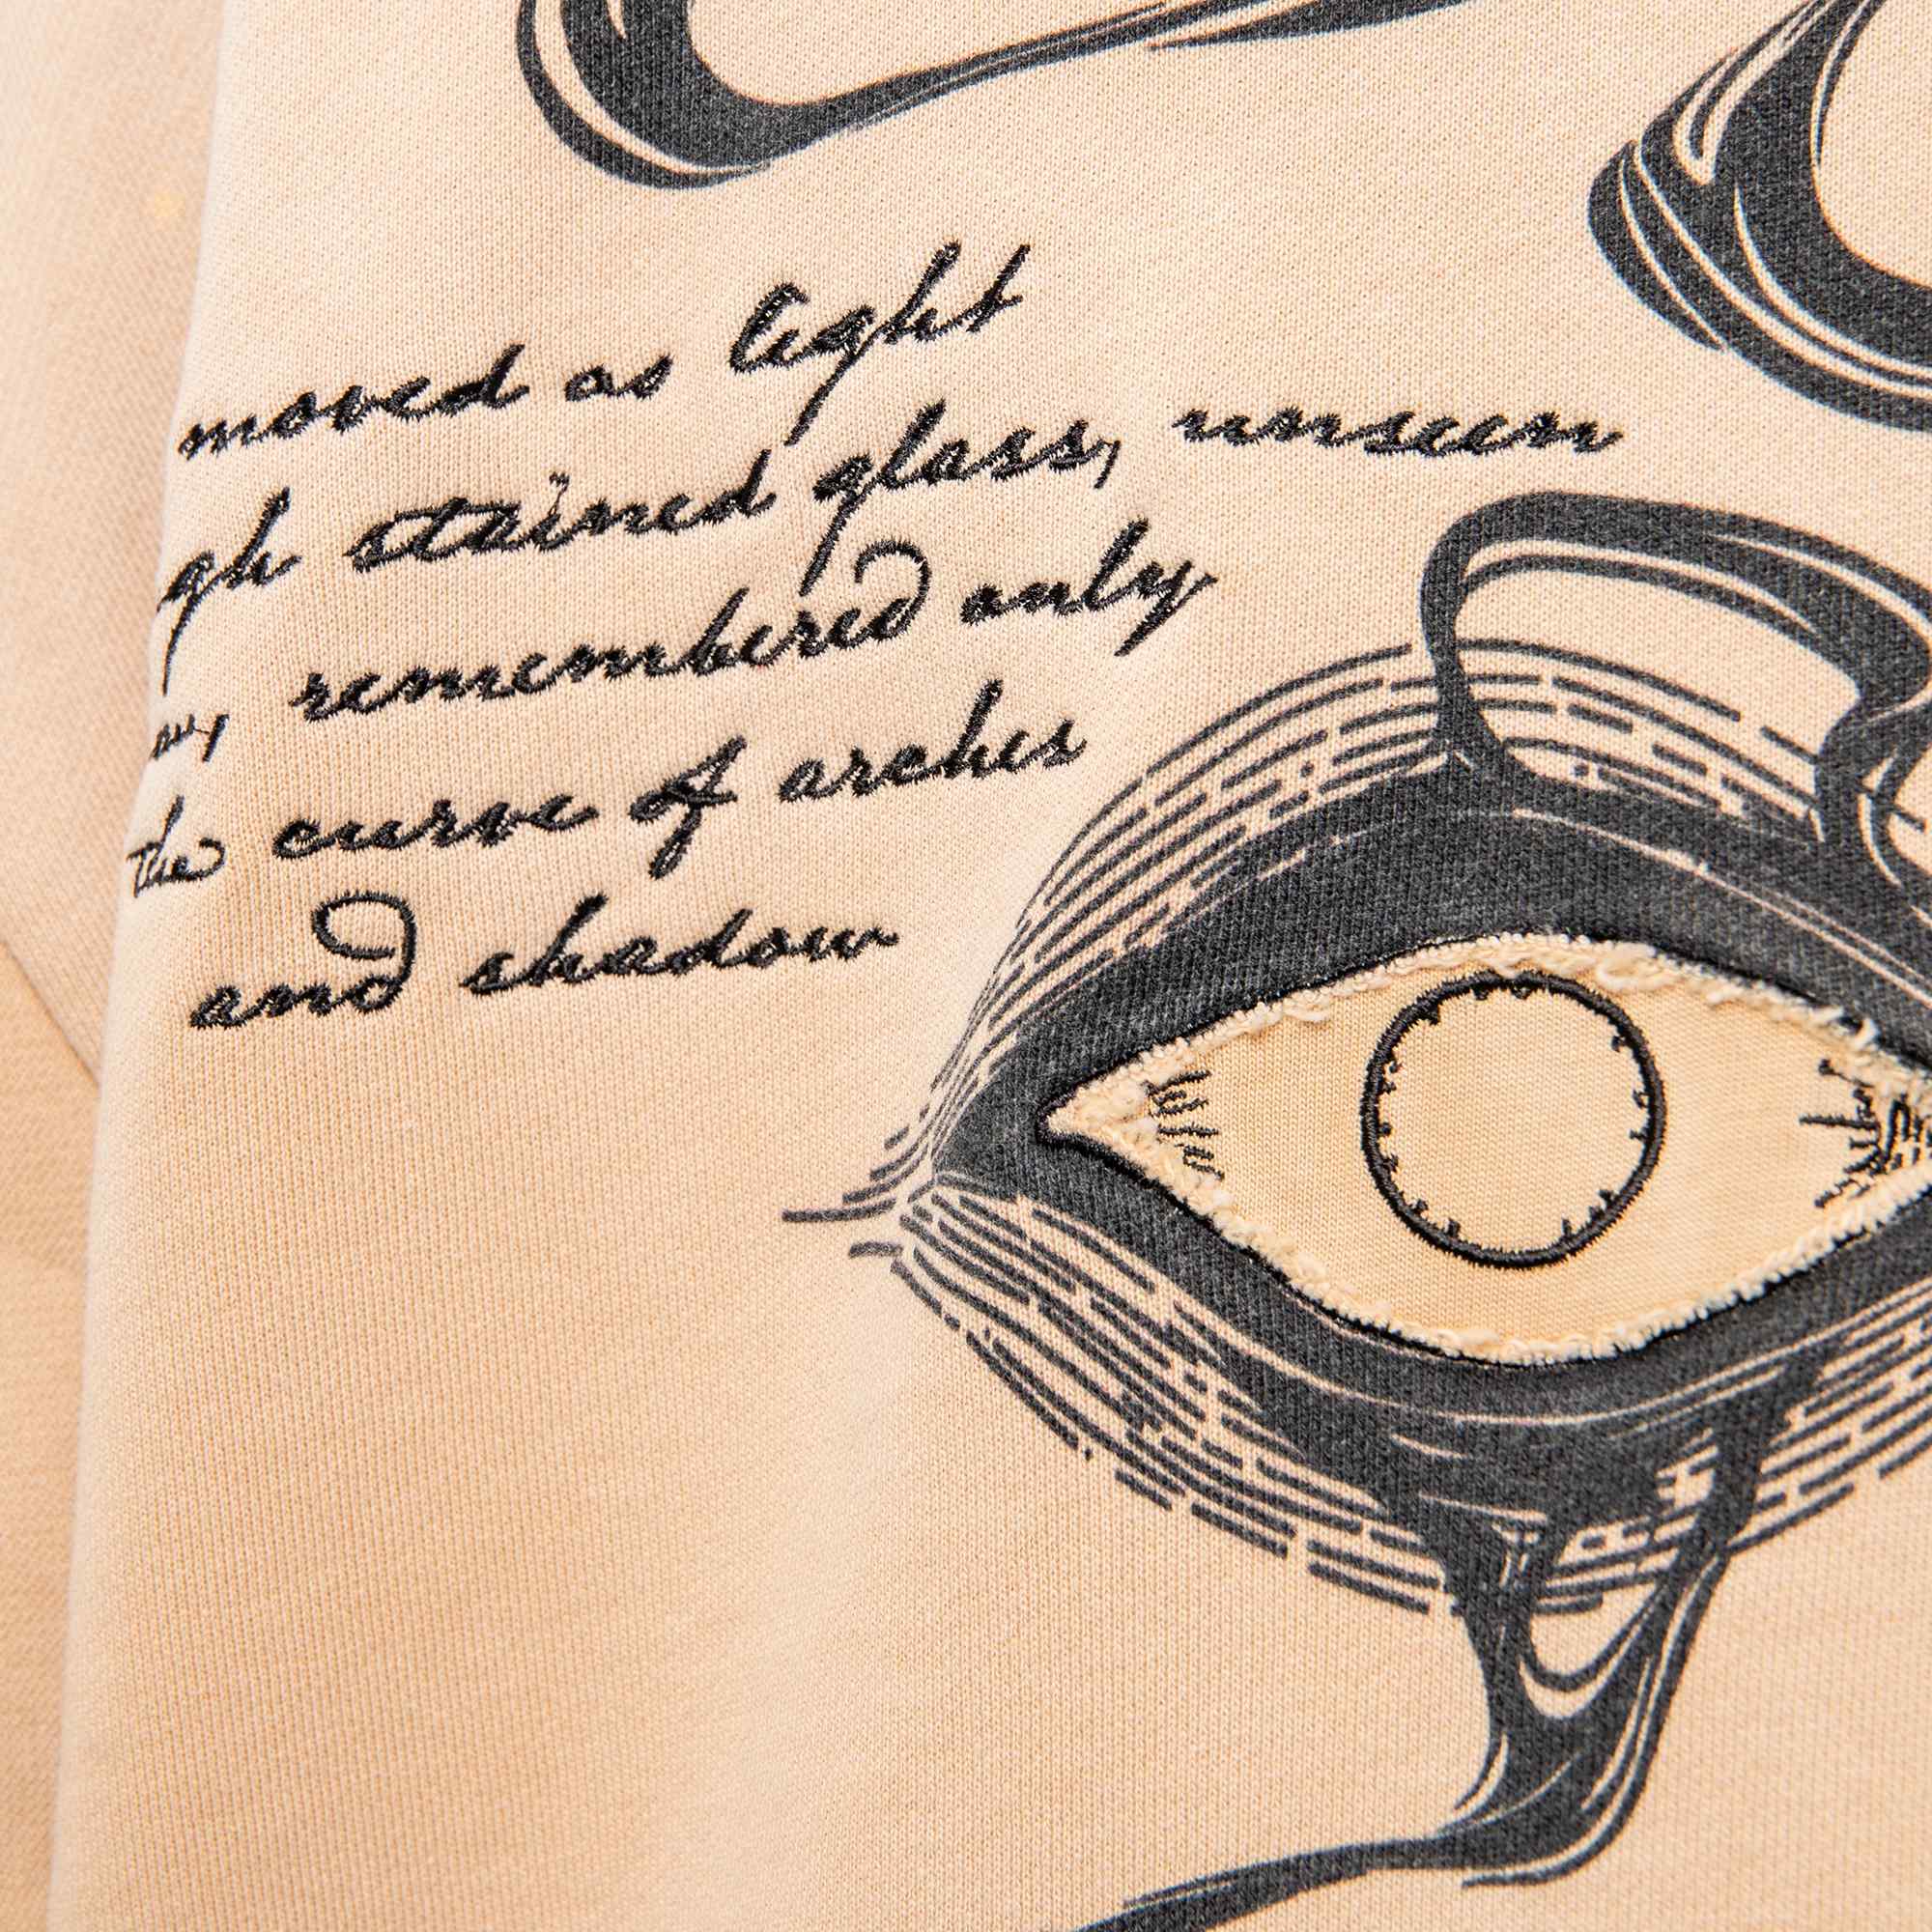 moved as light
gh stained glass, unseen
remembered only
the curve of arches
and shadow